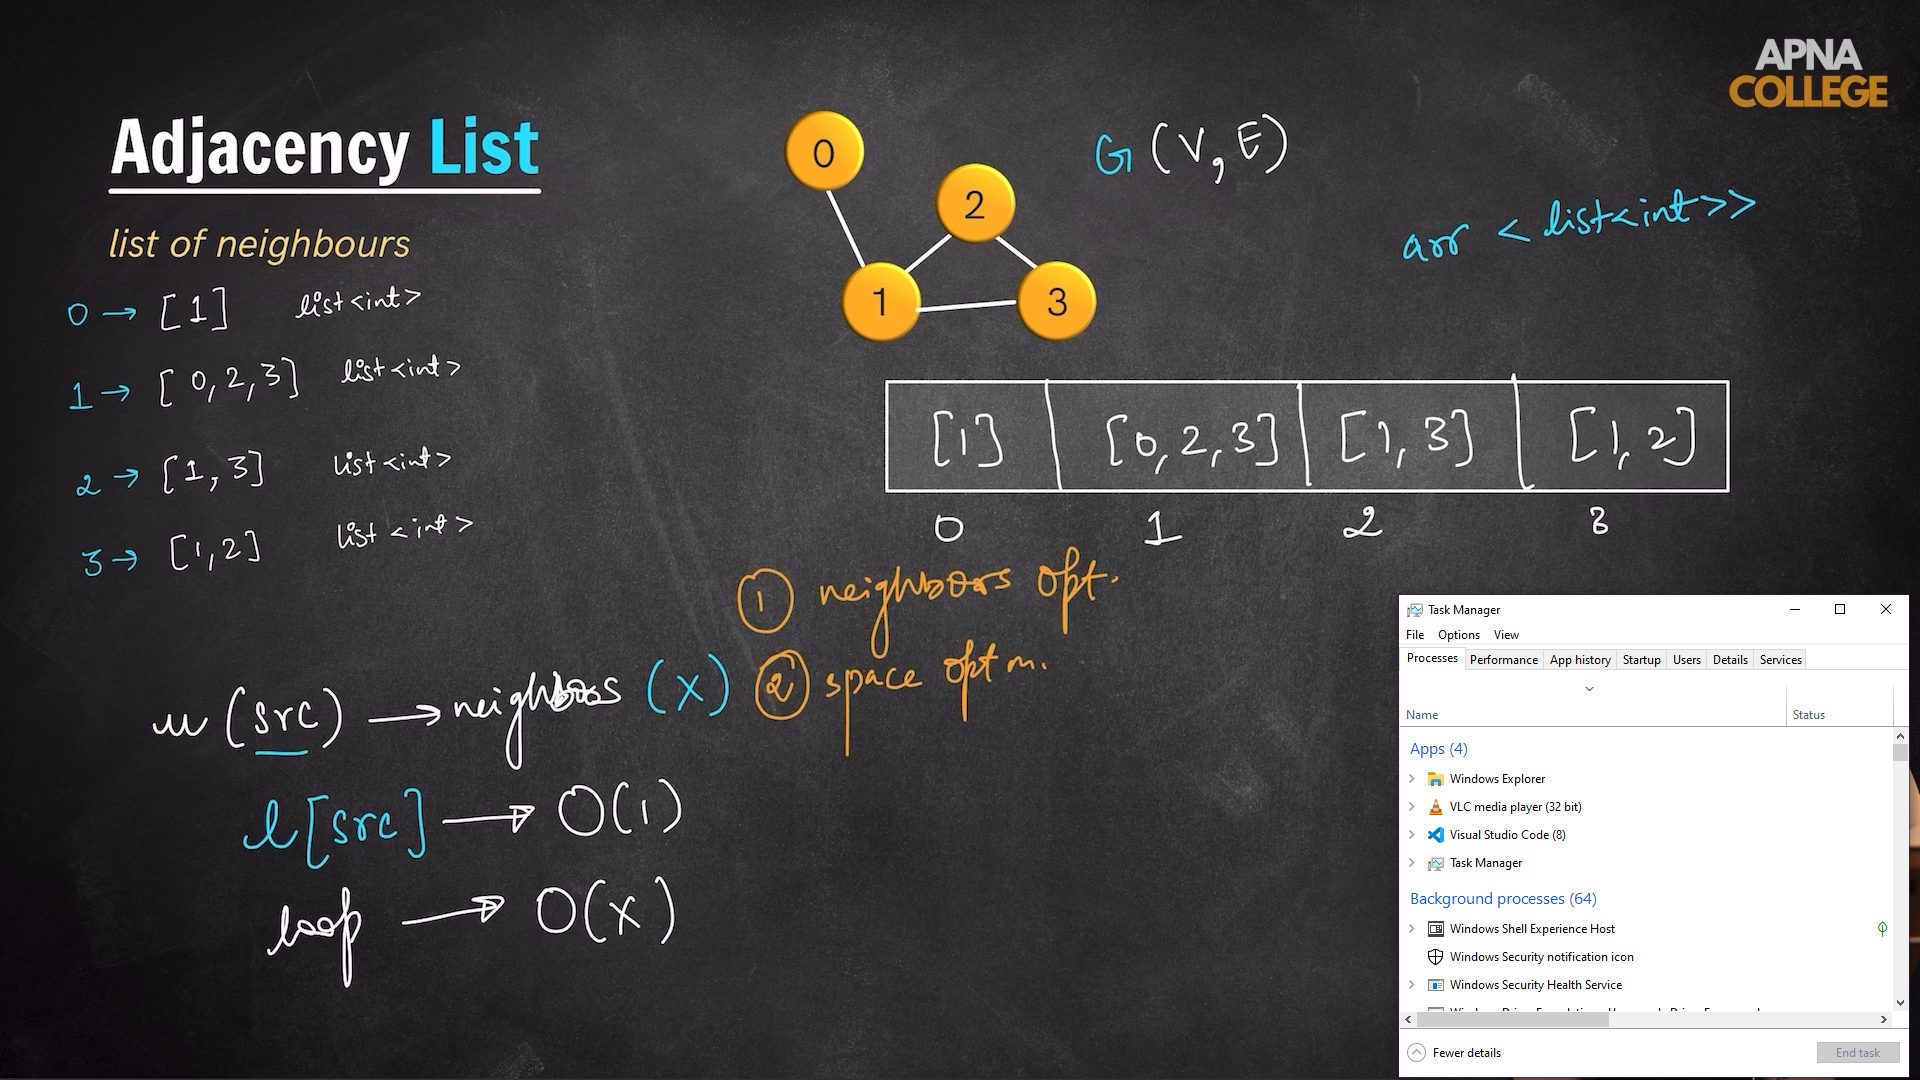 APNA
COLLEGE
Adjacency List
list of neighbours
0 → [1] list<int>
1 → [0,2,3] list<int>
2 → [1,3] list<int>
3 → [1,2] list<int>
0
2
1
3
G (V,E)
arr <list<int>>
[1] [0,2,3] [1,3] [1,2]
0 1 2 3
1 neighbors opt.
2 space optm.
(src) → neighbors (x)
l[src] → O(1)
loop → O(x)
Task Manager
File Options View
Processes Performance App history Startup Users Details Services
Name Status
Apps (4)
Windows Explorer
VLC media player (32 bit)
Visual Studio Code (8)
Task Manager
Background processes (64)
Windows Shell Experience Host
Windows Security notification icon
Windows Security Health Service
Fewer details End task